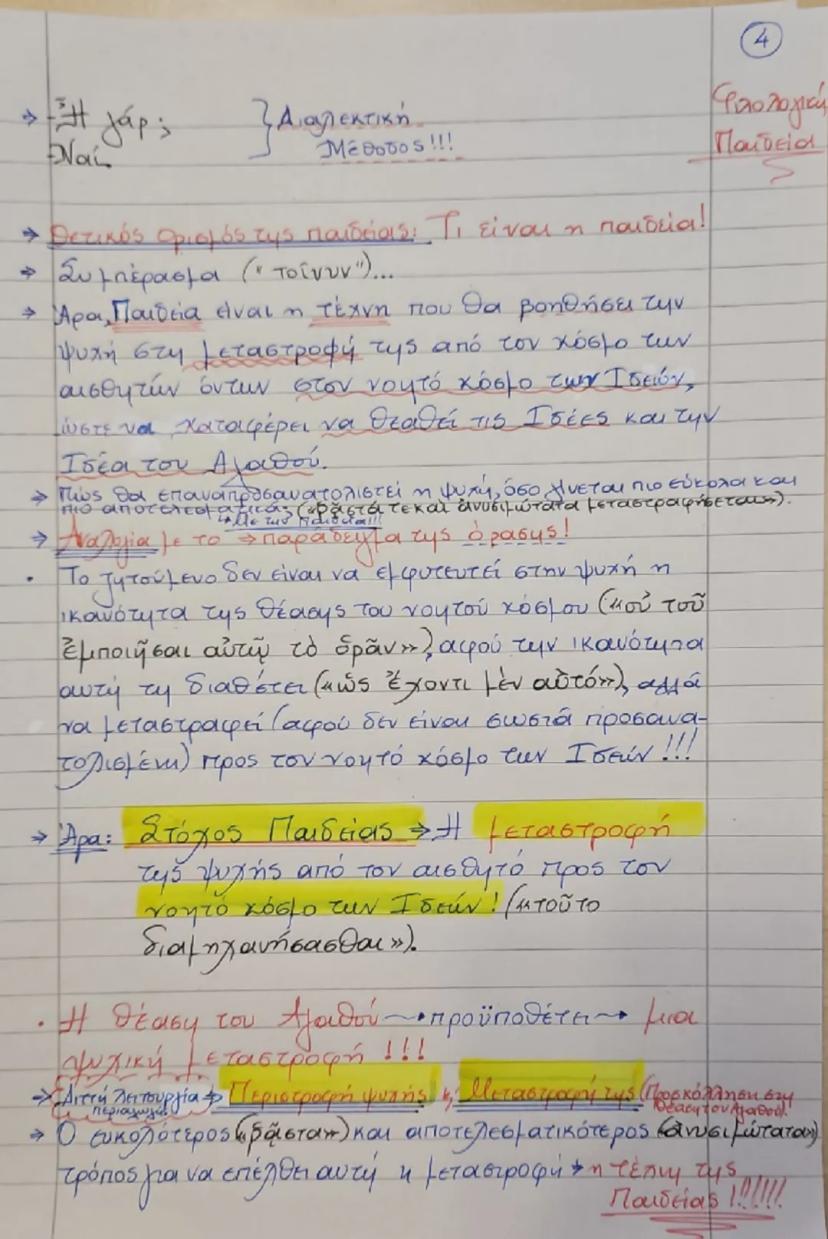 4
Φιλολογική
Παιδεία
→ -Ἦ γάρ;
-Ναί.
} Διαλεκτική
Μέθοδος!!!
→ Θετικός ορισμός της παιδείας: Τι είναι η παιδεία!
→ Συμπέρασμα ("τοίνυν")...
→ Άρα, Παιδεία είναι η τέχνη που θα βοηθήσει την
ψυχή στη μεταστροφή της από τον κόσμο των
αισθητών όντων στον νοητό κόσμο των Ιδεών,
ώστε να καταφέρει να θεαθεί τις Ιδέες και την
Ιδέα του Αγαθού.
→ Πώς θα επαναπροσανατολιστεί η ψυχή, όσο γίνεται πιο εύκολα και
πιο αποτελεσματικά; («ῥᾷστά τε καὶ ἀνυσιμώτατα μεταστραφήσεται»).
↳ Με την Παιδεία!!!
→ Αναλογία με το → παράδειγμα της όρασης!
• Το ζητούμενο δεν είναι να εμφυτευτεί στην ψυχή η
ικανότητα της θέασης του νοητού κόσμου («οὐ τοῦ
ἐμποιῆσαι αὐτῷ τὸ ὁρᾶν»), αφού την ικανότητα
αυτή τη διαθέτει («ὡς ἔχοντι μὲν αὐτό»), αλλά
να μεταστραφεί (αφού δεν είναι σωστά προσανα-
τολισμένη) προς τον νοητό κόσμο των Ιδεών!!!
→ Άρα: Στόχος Παιδείας → Η μεταστροφή
της ψυχής από τον αισθητό προς τον
νοητό κόσμο των Ιδεών! («τοῦτο
διαμηχανήσασθαι»).
• Η θέαση του Αγαθού → προϋποθέτει → μια
ψυχική μεταστροφή!!!
→ Διττή λειτουργία → Περιστροφή ψυχής κ, Μεταστροφή της (Προσκόλληση στη
περιαγωγή
θέαση του Αγαθού).
→ Ο ευκολότερος («ῥᾷστα») και αποτελεσματικότερος («ἀνυσιμώτατα»)
τρόπος για να επέλθει αυτή η μεταστροφή → η τέχνη της
Παιδείας!!!!!!